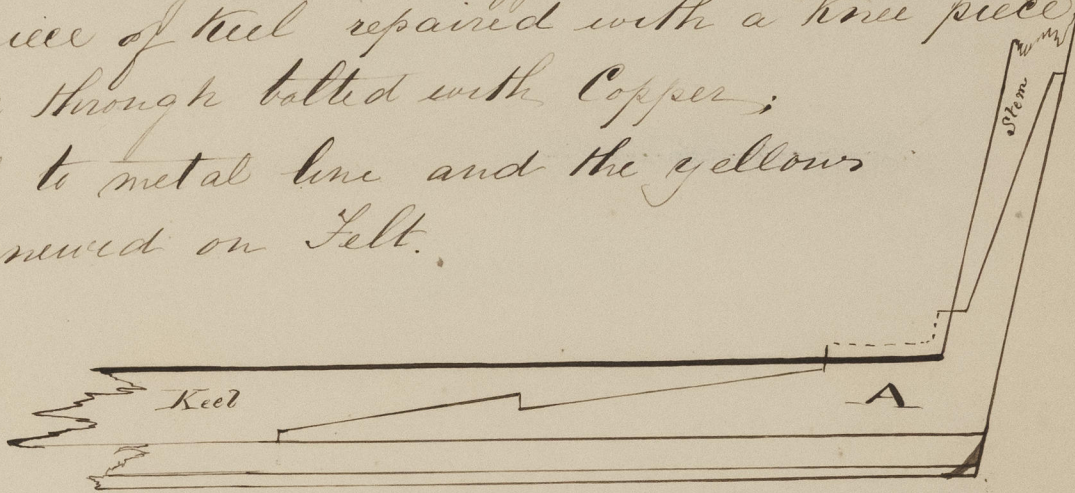 iece of Keel repaired with a Knee piece,
through bolted with Copper;
to metal line and the yellows
newed on Felt.
Stem
Keel
A